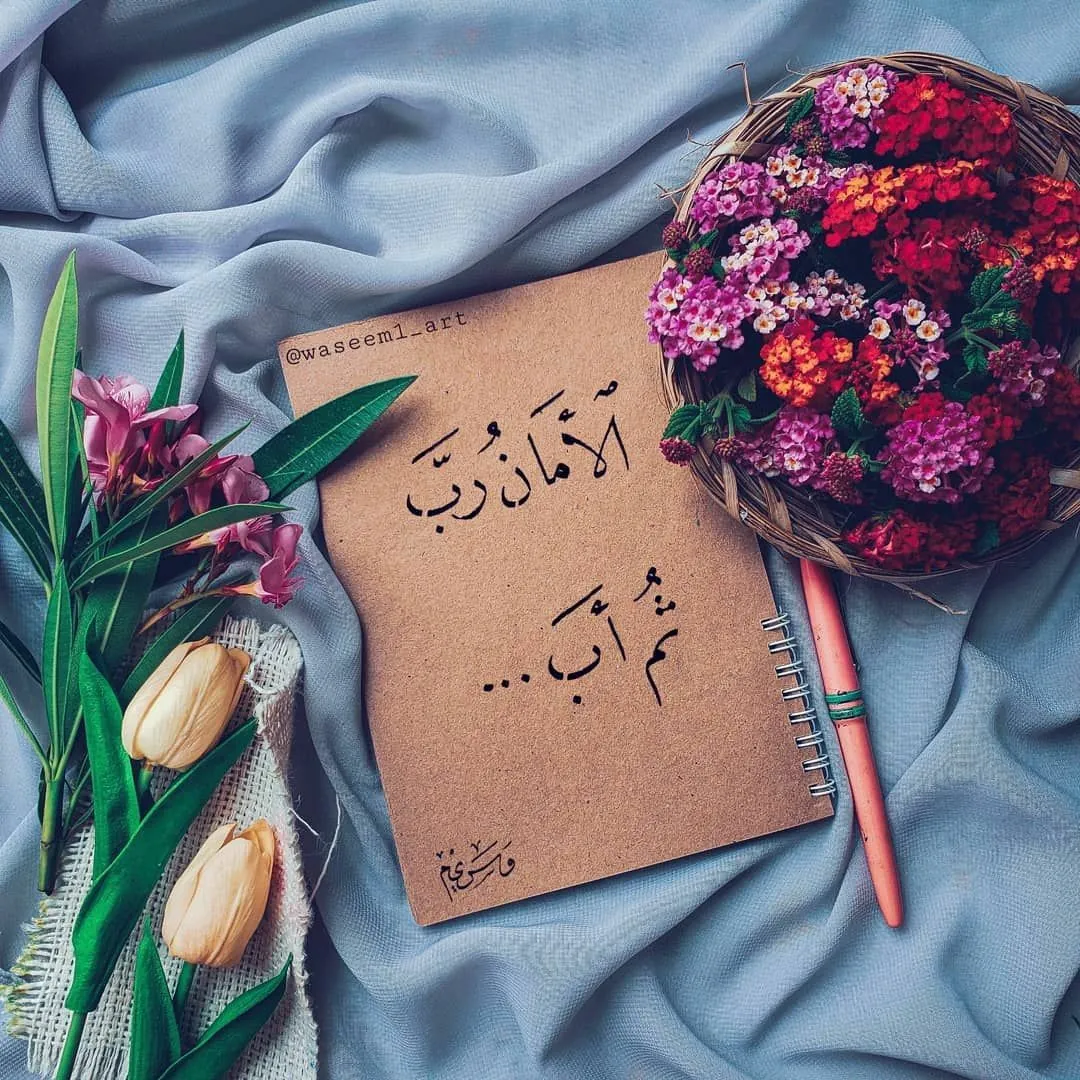 @waseem1_art
الأَمَانُ رَبَّ
ثُمَّ أَبَ ...